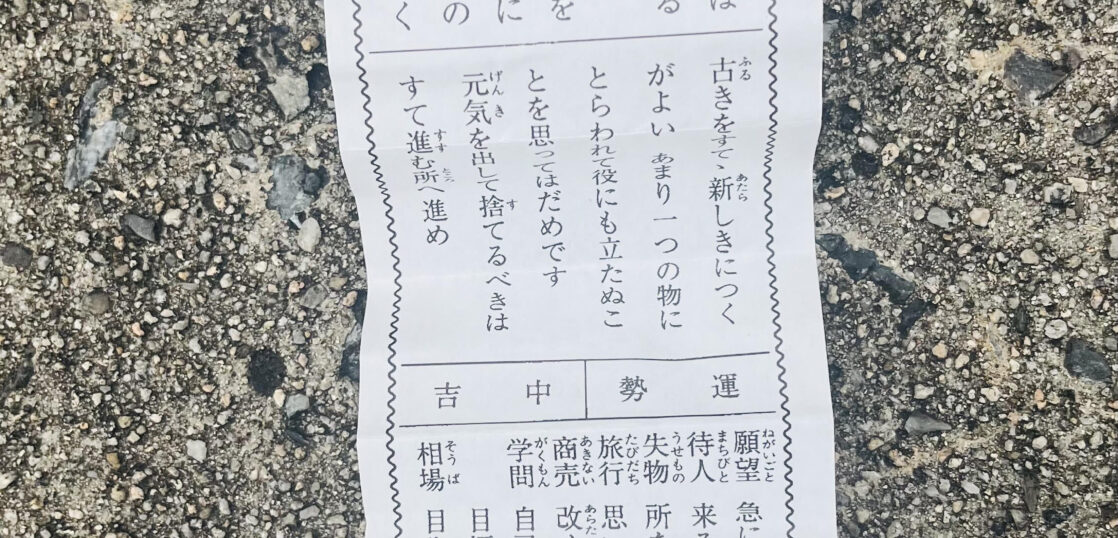 は
る
を
に
の
く
古きをすて、新しきにつく
がよい あまり一つの物に
とらわれて役にも立たぬこ
とを思ってはだめです
元気を出して捨てるべきは
すて進む所へ進め
運勢 中吉
願望 急に
待人 来
失物 所
旅行 思
商売 改
学問 自
目
相場 目